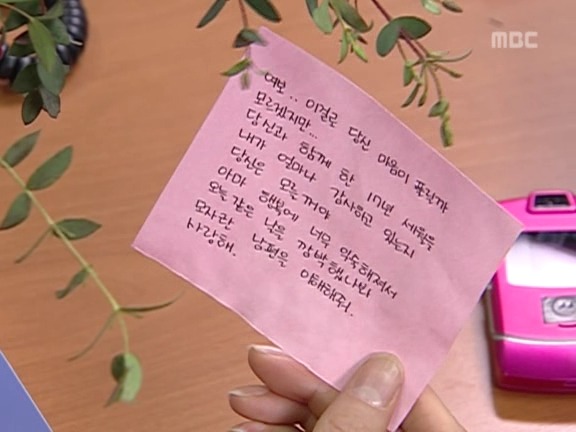 MBC
여보.. 이걸로 당신 마음이 풀릴까
모르겠지만...
당신과 함께 한 17년 세월을
내가 얼마나 감사하고 있는지
당신은 모를꺼야
아마 행복에 너무 익숙해져서
오늘 같은 날을 깜박했나봐
모자란 남편을 이해해줘.
사랑해.